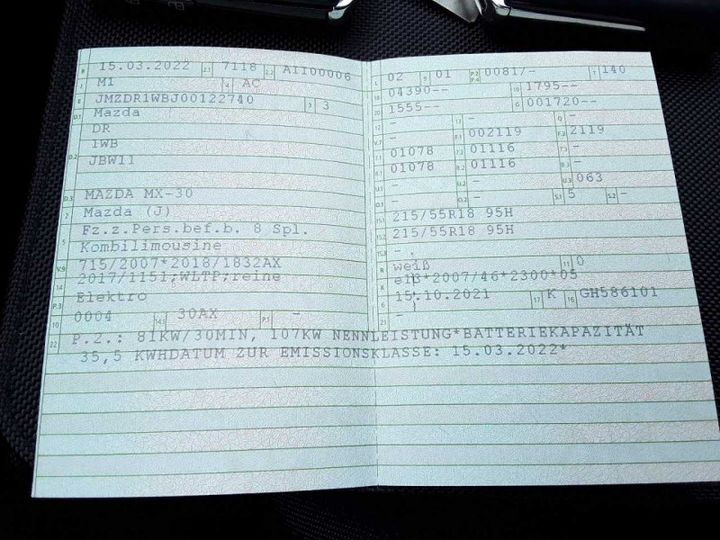 15.03.2022 7118 AII00006
M1 AC
JMZDR1WBJ00122740 3
Mazda
DR
1WB
JBW11
MAZDA MX-30
Mazda (J)
Fz.z.Pers.bef.b. 8 Spl.
Kombilimousine
715/2007*2018/1832AX
2017/1151;WLTP;reine
Elektro
0004 30AX -
02 01 00817- 140
04390-- 1795--
1555-- 001720--
- - -
- 002119 2119
01078 01116 -
01078 01116 -
- - 063
- - 5 -
215/55R18 95H
215/55R18 95H
-
weiß 0
e13*2007/46*2300*05
15.10.2021 K GH586101
P.2.: 81KW/30MIN, 107KW NENNLEISTUNG*BATTERIEKAPAZITÄT
35,5 KWHDATUM ZUR EMISSIONSKLASSE: 15.03.2022*